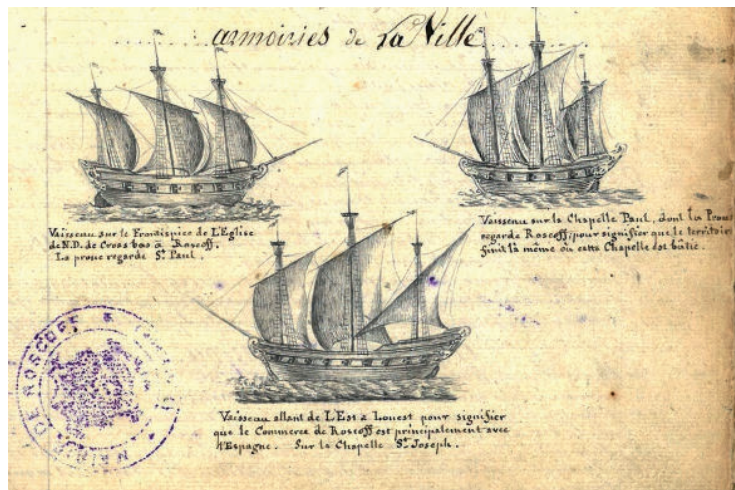 armoiries de La Ville
Vaisseau sur le Frontispice de L'Eglise
de N.D. de Croas bas à Roscoff.
La proue regarde St. Paul.
Vaisseau sur la Chapelle Paul, dont la Proue
regarde Roscoff, pour signifier que le territoire
finit là même où cette Chapelle est bâtie.
Vaisseau allant de L'Est à Louest pour signifier
que le Commerce de Roscoff est principalement avec
l'Espagne. Sur la Chapelle St. Joseph.
DE ROSCOFF